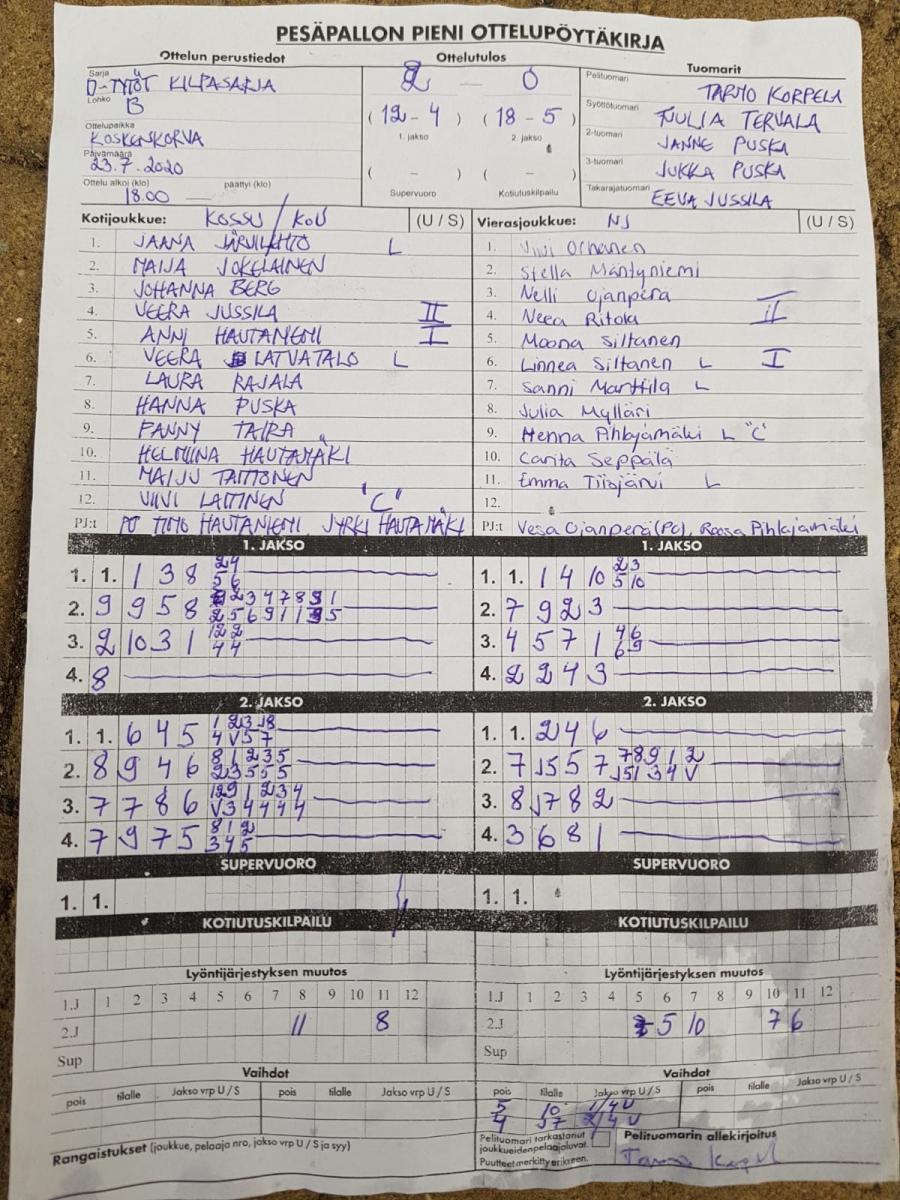 PESÄPALLON PIENI OTTELUPÖYTÄKIRJA
Ottelun perustiedot
Sarja
D-TYTÖT KILPASARJA
Lohko
B
Ottelupaikka
KOSKENKORVA
Päivämäärä
23.7.2020
Ottelu alkoi (klo) päättyi (klo)
18.00
Ottelutulos
2 — 0
(12 - 4) (18 - 5)
1. jakso 2. jakso
( - ) ( - )
Supervuoro Kotiutuskilpailu
Tuomarit
Pelituomari TARMO KORPELA
Syöttötuomari TERVALA
2-tuomari JANNE PUSKA
3-tuomari JUKKA PUSKA
Takarajatuomari EEVA JUSSILA
Kotijoukkue: KOSSU / KoU (U / S)
1. JAANA JÄRVILEHTO L
2. MAIJA JOKELAINEN
3. JOHANNA BERG
4. VEERA JUSSILA II
5. ANNI HAUTANIEMI I
6. VEERA LATVATALO L
7. LAURA RAJALA
8. HANNA PUSKA
9. FANNY TAIRA
10. HELMIINA HAUTAMÄKI
11. MAIJU TAITTONEN
12. VIIVI LAITINEN "C"
PJ:t PJ TIMO HAUTANIEMI JYRKI HAUTAMÄKI
Vierasjoukkue: NJ (U / S)
1. Viivi
2. Stella Mäntyniemi
3. Nelli Ojanperä
4. Neea Ritola II
5. Moona Siltanen
6. Linnea Siltanen L I
7. Sanni Marttila L
8. Julia Mylläri
9. Henna Pihlajamäki L "C"
10. Carita Seppälä
11. Emma Tiisjärvi L
12.
PJ:t Vesa Ojanperä (PJ), Roosa Pihlajamäki
1. JAKSO
1. 1. 1 3 8 24
56
2. 9 9 5 8
3. 2 10 3 1 122
44
4. 8
1. JAKSO
1. 1. 1 4 10 23
5 10
2. 7 9 2 3
3. 4 5 7 1 46
69
4. 2 2 4 3
2. JAKSO
1. 1. 6 4 5
2. 8 9 4 6 81235
23555
3. 7 7 8 6
4. 7 9 7 5 812
345
2. JAKSO
1. 1. 2 4 6
2. 7 5 5 7 78912
3. 8 7 8 2
4. 3 6 8 1
SUPERVUORO
1. 1.
SUPERVUORO
1. 1.
KOTIUTUSKILPAILU
KOTIUTUSKILPAILU
Lyöntijärjestyksen muutos
1.J 1 2 3 4 5 6 7 8 9 10 11 12
2.J 11 8
Sup
Lyöntijärjestyksen muutos
1.J 1 2 3 4 5 6 7 8 9 10 11 12
2.J 5 10 7 6
Sup
Vaihdot
pois tilalle Jakso vrp U / S pois tilalle Jakso vrp U / S
Vaihdot
pois tilalle Jakso vrp U / S pois tilalle Jakso vrp U / S
5 10 1/4U
4 2/4U
Rangaistukset (joukkue, pelaaja nro, jakso vrp U / S ja syy)
Pelituomari tarkastanut
joukkueiden pelaajaluvat.
Puutteet merkitty erikseen.
Pelituomarin allekirjoitus